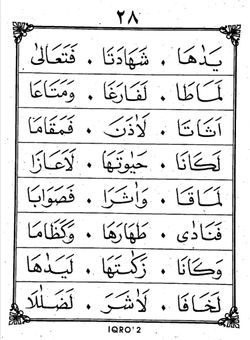 ٢٨
يَدٰهَا • شَهَادَتَا • فَتَعَالىٰ
لَمَاطَا • لَفَارِغَا • وَمَتَاعَا
اَثَاثَا • لَاَذَنَ • فَمَقَامَا
لَكَانَا • حَيٰوتَهَا • لَاَعَازَا
لَمَاقَا • وَاَشَرَا • فَصَوَابَا
فَنَادٰى • طَهَارَهَا • وَكَظَامَا
وَكَانَا • زَكٰتَهَا • لَيَدٰهَا
لَخَافَا • لَاَشَرَ • لَضَلٰلَا
IQRO'2